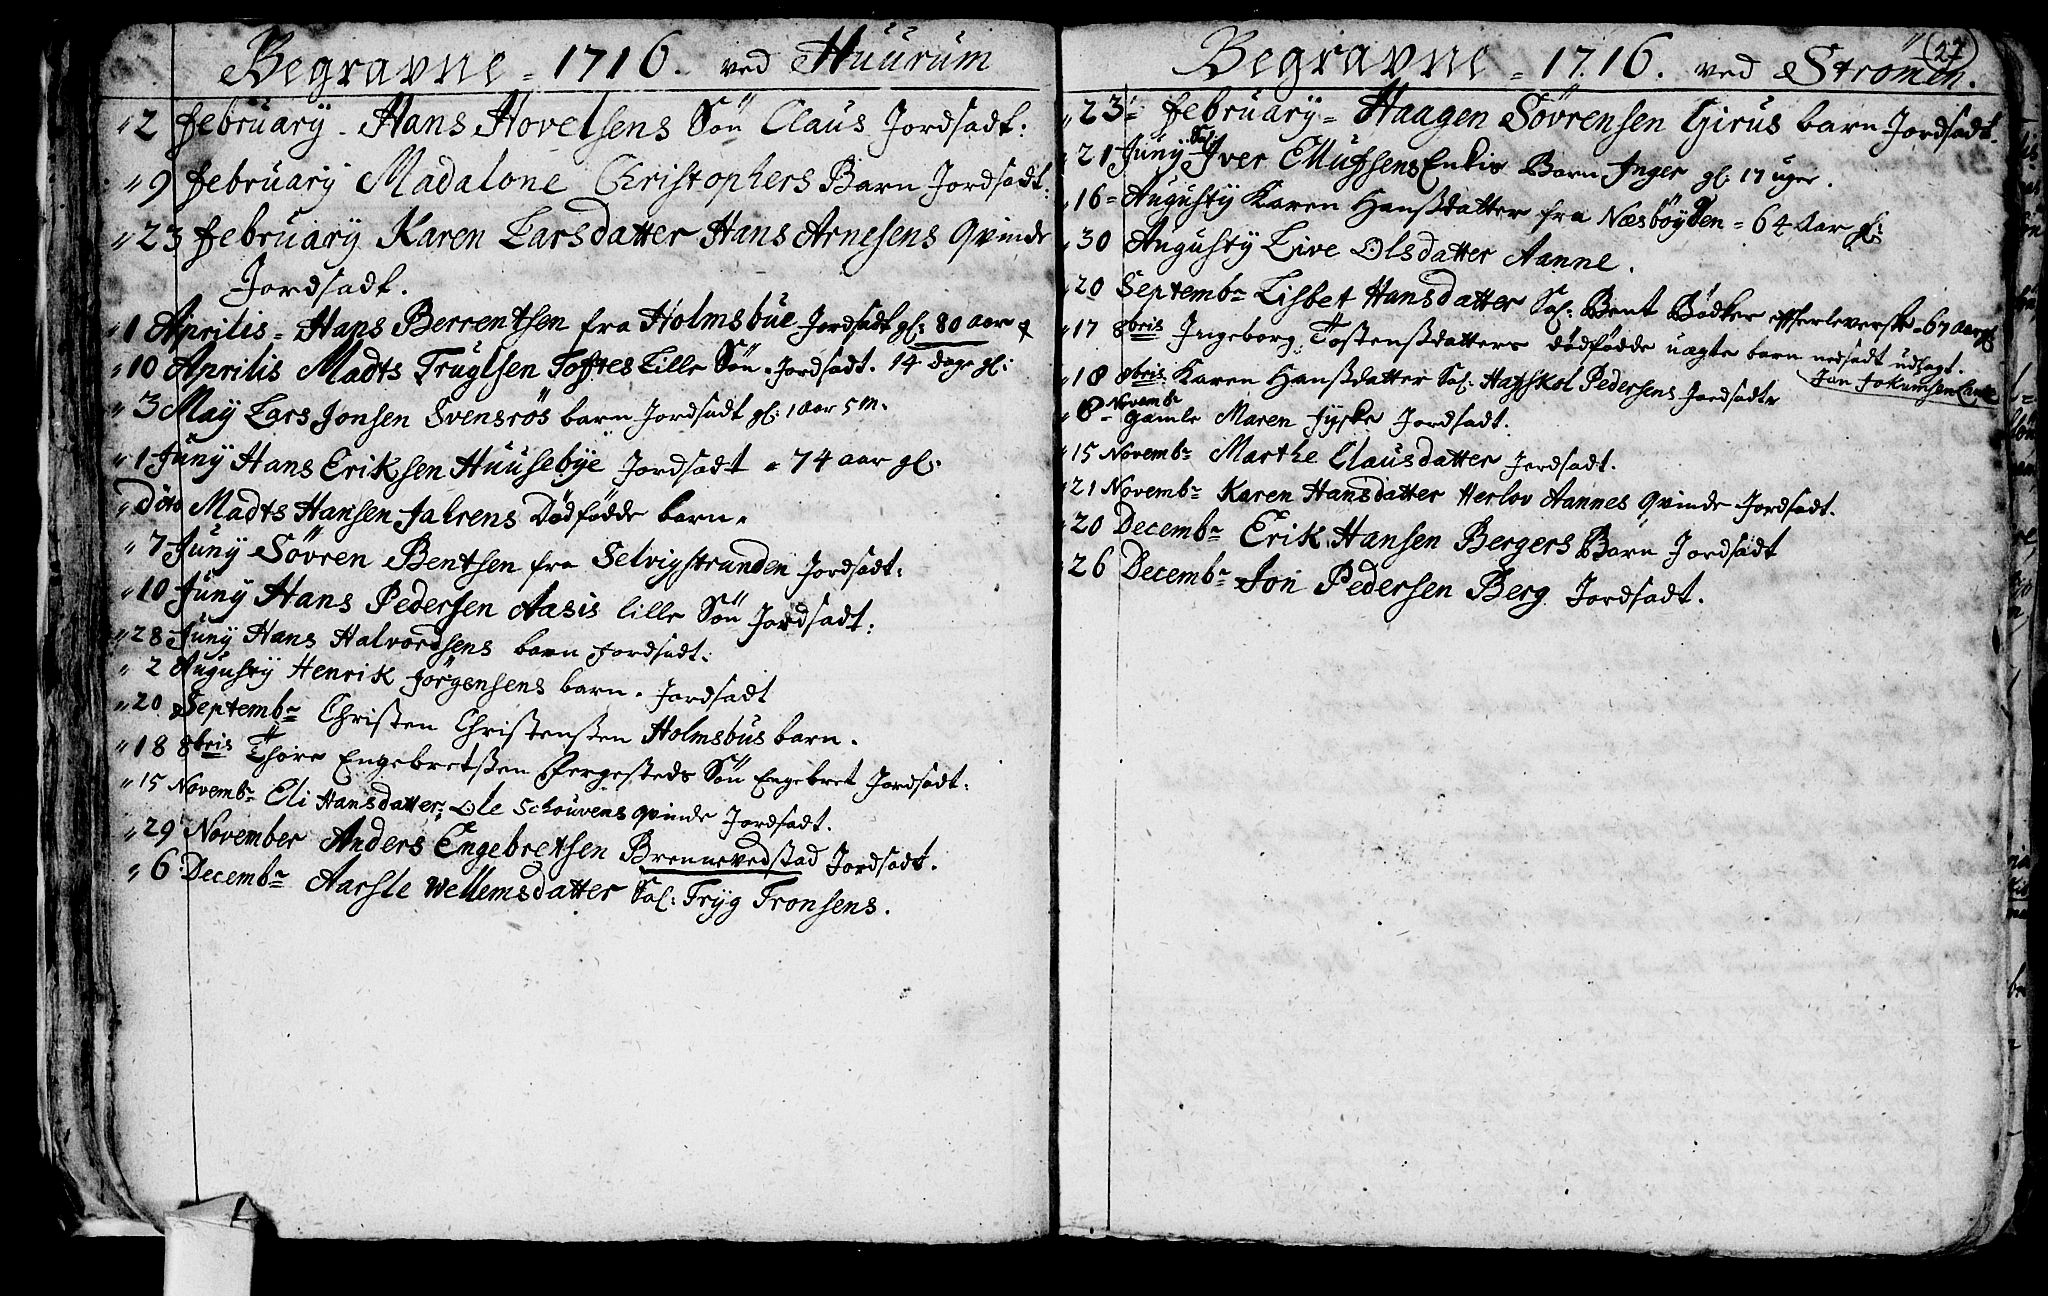 Begravne = 1716. ved Huurum
2 february - Hans Hovelsens Søn Claus Jordsadt:
9 february Madalone Christophers Barn Jordsadt:
23 february Karen Larsdatter Hans Arnesens Qvinde
Jordsadt.
1 Aprilis = Hans Berrentsen fra Holmsbue Jordsadt gl: 80 aar
10 Aprilis Madts Truglsen Toftes Lille Søn. Jordsadt. 14 dage gl:
3 May Lars Jonsen Svensrøs barn Jordsadt gl: 1 aar 5 m.
1 Juny Hans Eriksen Huusebye Jordsadt = 74 aar gl:
Dito Madts Hansen Jahrens Dødfødde barn.
7 Juny Søvren Bentsen fra Selvigstranden Jordsadt:
10 Juny Hans Pedersen Aasis lille Søn Jordsadt:
28 Juny Hans Halvordsens barn Jordsadt:
2 Augusty Henrik Jørgensens barn. Jordsadt
20 Septembr Christen Christenssen Holmsbus barn.
18 8bris Thore Engebretssen Bergesteds Søn Engebret Jordsadt:
15 Novembr Eli Hansdatter: Ole Schouvens Qvinde Jordsadt.
29 November Anders Engebretsen Brennevedstad Jordsadt.
6 Decembr Aarsle Wellemsdatter Sal: Tryg Tronsens.
27
Begravne = 1716. ved Strømen.
23 = february = Haagen Søvrensen Girus barn Jordsadt.
Sal:
21 Juny Iver Enkis Barn Inger gl: 17 uger.
16 = Augusty Karen Hanssdatter fra Næsbøyden = 64 Aar gl:
30 Augusty Live Olsdatter Aanne.
20 Septembr Lisbet Hansdatter Sal: Bent Bødker efterleverske = 67 aar gl
17 8bris Ingeborg Tostenssdatters dødfødde uægte barn nedsadt udlagt.
Jan Jokumsen
18 8bris Karen Hanssdatter Sal: Pedersens Jordsadt
6 = Novembr gamle Maren Jyske Jordsadt.
15 Novembr Marthe Clausdatter Jordsadt.
21 Novembr Karen Hansdatter Herlov Aannes Qvinde Jordsadt.
20 Decembr Erik Hansen Bergers Barn Jordsadt
26 Decembr Jon Pedersen Berg Jordsadt.